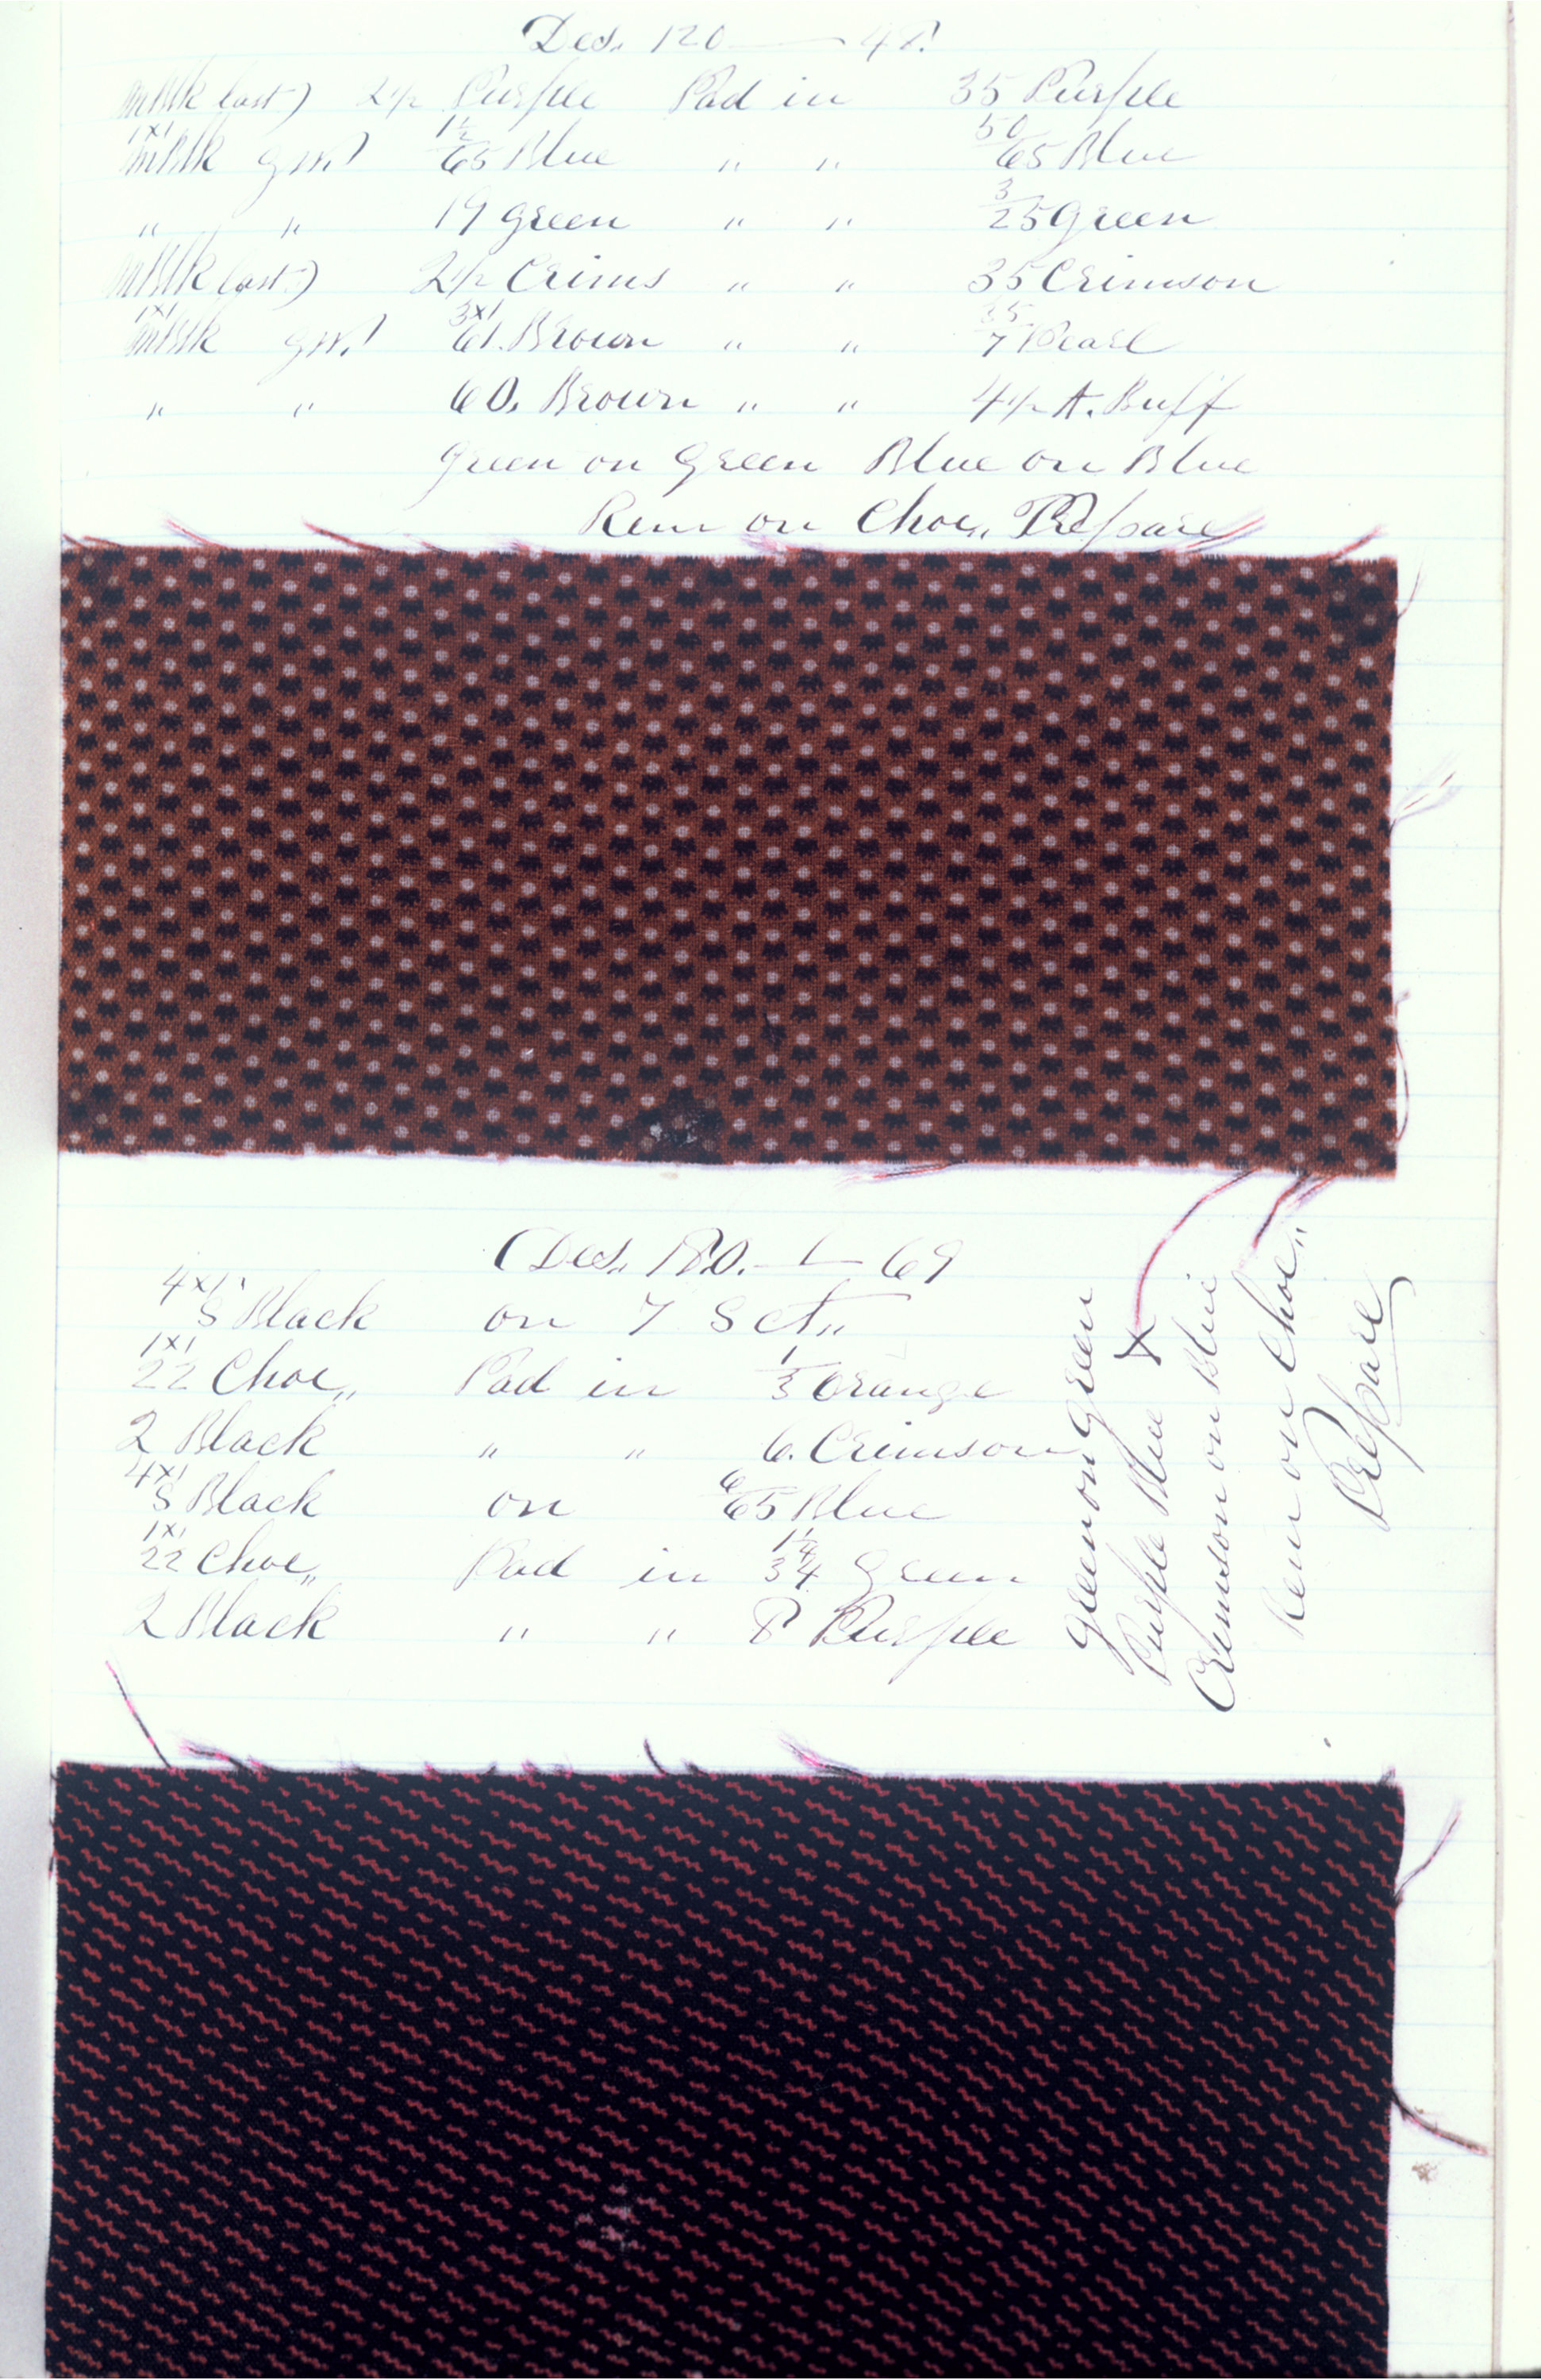 Des. 120 — 48
mBlk last) 2 1/2 Purple Pad in 35 Purple
1x1 mBlk gm.) 1 1/2/65 Blue " " 50/65 Blue
" " 19 green " " 3/25 green
mBlk last) 2 1/2 Crims " " 35 Crimson
1x1 mBlk gm.) 3x1 61. Brown " " 35/7 Pearl
" " 60. Brown " " 4 1/2 A. Buff
green on green Blue on Blue
Rem on Choc,, Prepare
Des. 180. — L — 69
4x1 S Black on 7 Sct,,
1x1 22 Choc,, Pad in 1/3 Orange
2 Black " " 6. Crimson
4x1 S Black on 6/65 Blue
1x1 22 Choc,, Pad in 1 1/4/34 green
2 Black " " 8 Purple
green on green
Purple Blue X
Crimson on Blue
Rem on Choc,,
Prepare